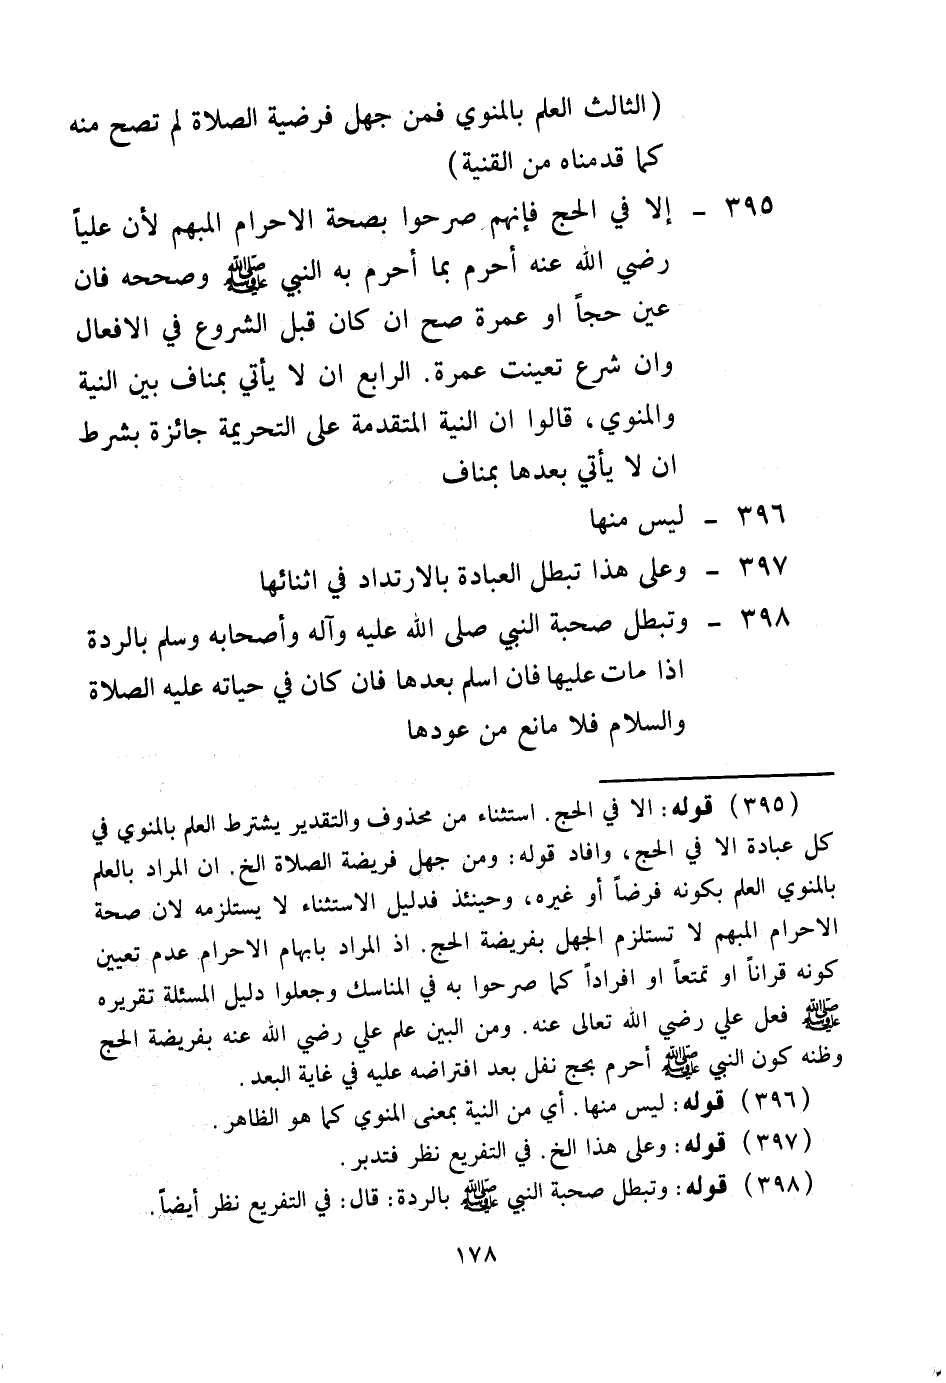 (الثالث العلم بالمنوي فمن جهل فرضية الصلاة لم تصح منه
كما قدمناه من القنية)
٣٩٥ - إلا في الحج فإنهم صرحوا بصحة الاحرام المبهم لأن علياً
رضي الله عنه أحرم بما أحرم به النبي ﷺ وصححه فان
عين حجاً او عمرة صح ان كان قبل الشروع في الافعال
وان شرع تعينت عمرة. الرابع ان لا يأتي بمناف بين النية
والمنوي، قالوا ان النية المتقدمة على التحريمة جائزة بشرط
ان لا يأتي بعدها بمناف
٣٩٦ - ليس منها
٣٩٧ - وعلى هذا تبطل العبادة بالارتداد في اثنائها
٣٩٨ - وتبطل صحبة النبي صلى الله عليه وآله وأصحابه وسلم بالردة
اذا مات عليها فان اسلم بعدها فان كان في حياته عليه الصلاة
والسلام فلا مانع من عودها
(٣٩٥) قوله: الا في الحج. استثناء من محذوف والتقدير يشترط العلم بالمنوي في
كل عبادة الا في الحج، وافاد قوله: ومن جهل فريضة الصلاة الخ. ان المراد بالعلم
بالمنوي العلم بكونه فرضاً أو غيره، وحينئذ فدليل الاستثناء لا يستلزمه لان صحة
الاحرام المبهم لا تستلزم الجهل بفريضة الحج. اذ المراد بابهام الاحرام عدم تعيين
كونه قراناً او تمتعاً او افراداً كما صرحوا به في المناسك وجعلوا دليل المسئلة تقريره
ﷺ فعل علي رضي الله تعالى عنه. ومن البين علم علي رضي الله عنه بفريضة الحج
وظنه كون النبي ﷺ أحرم بحج نفل بعد افتراضه عليه في غاية البعد.
(٣٩٦) قوله: ليس منها. أي من النية بمعنى المنوي كما هو الظاهر.
(٣٩٧) قوله: وعلى هذا الخ. في التفريع نظر فتدبر.
(٣٩٨) قوله: وتبطل صحبة النبي ﷺ بالردة: قال: في التفريع نظر أيضاً.
١٧٨